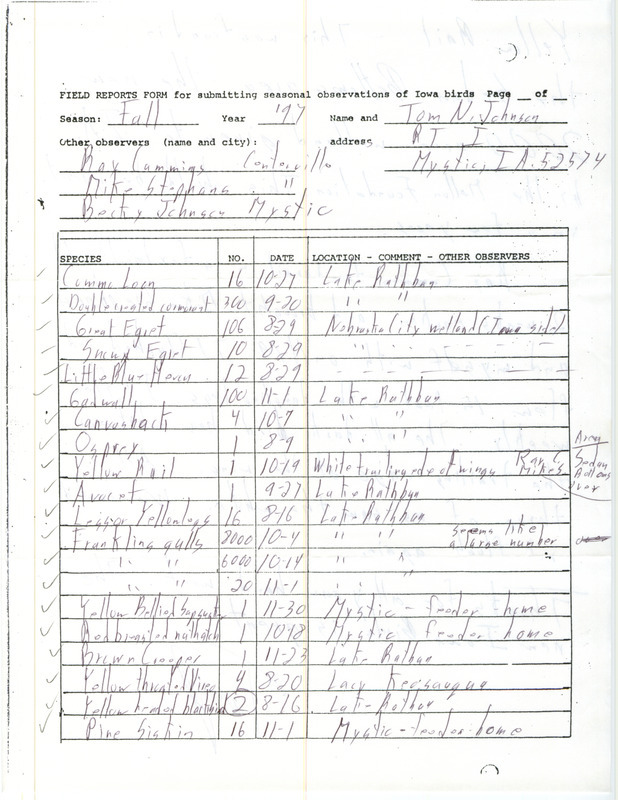 FIELD REPORTS FORM for submitting seasonal observations of Iowa birds Page __ of __
Season: Fall Year '97 Name and Tom N. Johnson
Other observers (name and city): address RT 1
Ray Cummins Centerville Mystic, IA. 52574
Mike Stephens "
Becky Johnson Mystic
SPECIES NO. DATE LOCATION - COMMENT - OTHER OBSERVERS
Common Loon 16 10-27 Lake Rathbun
Double crested cormorant 300 9-20 " "
Great Egret 106 8-29 Nebraska City wetland (Iowa side)
Snowy Egret 10 8-29 " "
Little Blue Heron 12 8-29
Gadwall 100 11-1 Lake Rathbun
Canvasback 4 10-7 " "
Osprey 1 8-9 " "
Yellow Rail 1 10-19 White trailing edge of wings Ray C. Mike S. Area Sedan Bottoms
Avocet 1 9-27 Lake Rathbun
Lesser Yellowlegs 16 8-16 Late Rathbun
Franklins gulls 8000 10-4 " " seems like a large number
" " 6000 10-14 " "
" " 20 11-1 " "
Yellow Bellied Sapsucker 1 11-30 Mystic - feeder - home
Red breasted nuthatch 1 10-18 Mystic feeder home
Brown Creeper 1 11-23 Lake Rathbun
Yellow throated Vireo 4 8-20 Lacy Keosauqua
Yellow headed blackbird 2 8-16 Lake Rathbun
Pine Siskin 16 11-1 Mystic - feeder - home